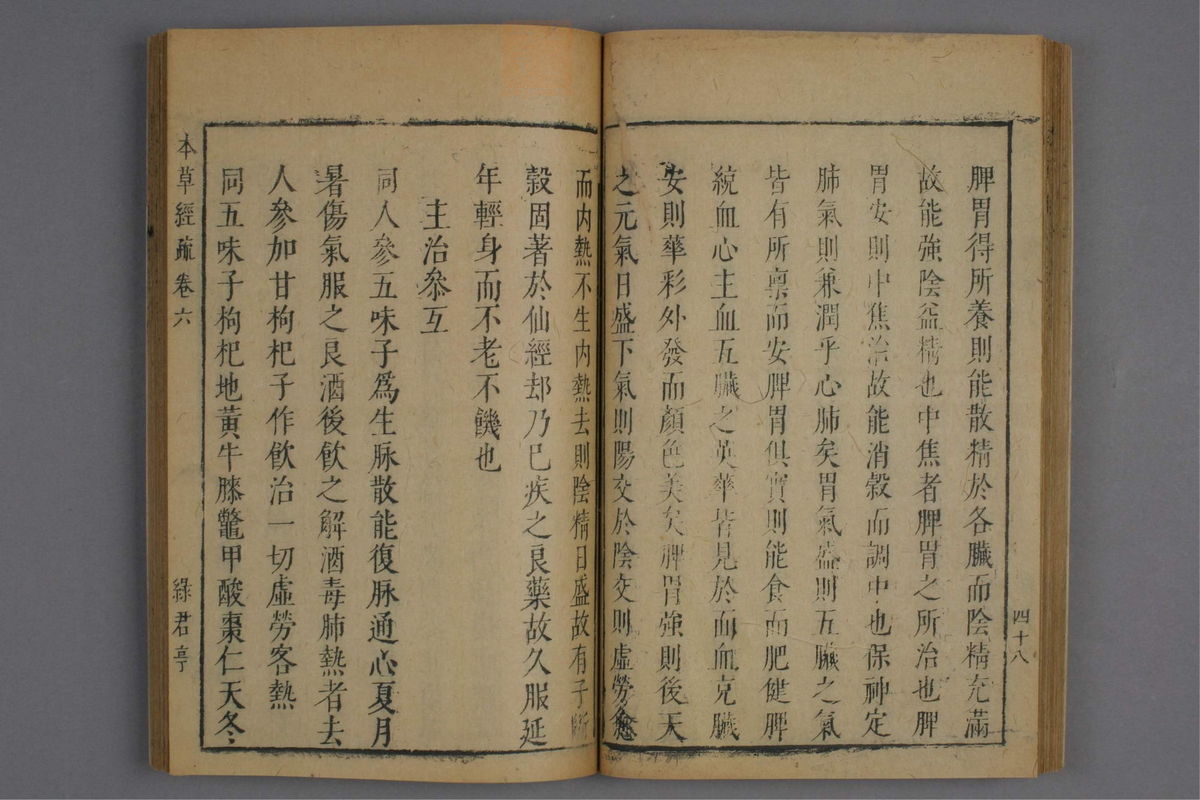 脾胃得所養則能散精於各臟而陰精充滿
故能強陰益精也中焦者脾胃之所治也脾
胃安則中焦治故能消穀而調中也保神定
肺氣則兼潤乎心肺矣胃氣盛則五臟之氣
皆有所稟而安脾胃俱實則能食而肥健脾
統血心主血五臟之英華皆見於面血充臟
安則華彩外發而顏色美矣脾胃強則後天
之元氣日盛下氣則陽交於陰交則虛勞愈
四十八
而內熱不生內熱去則陰精日盛故有子斷
穀固著於仙經却乃已疾之良藥故久服延
年輕身而不老不饑也
主治叅互
同人參五味子爲生脉散能復脉通心夏月
暑傷氣服之良酒後飲之解酒毒肺熱者去
人參加甘枸杞子作飲治一切虛勞客熱
同五味子枸杞地黃牛膝鼈甲酸棗仁天冬
本草經疏卷六
綠君亭